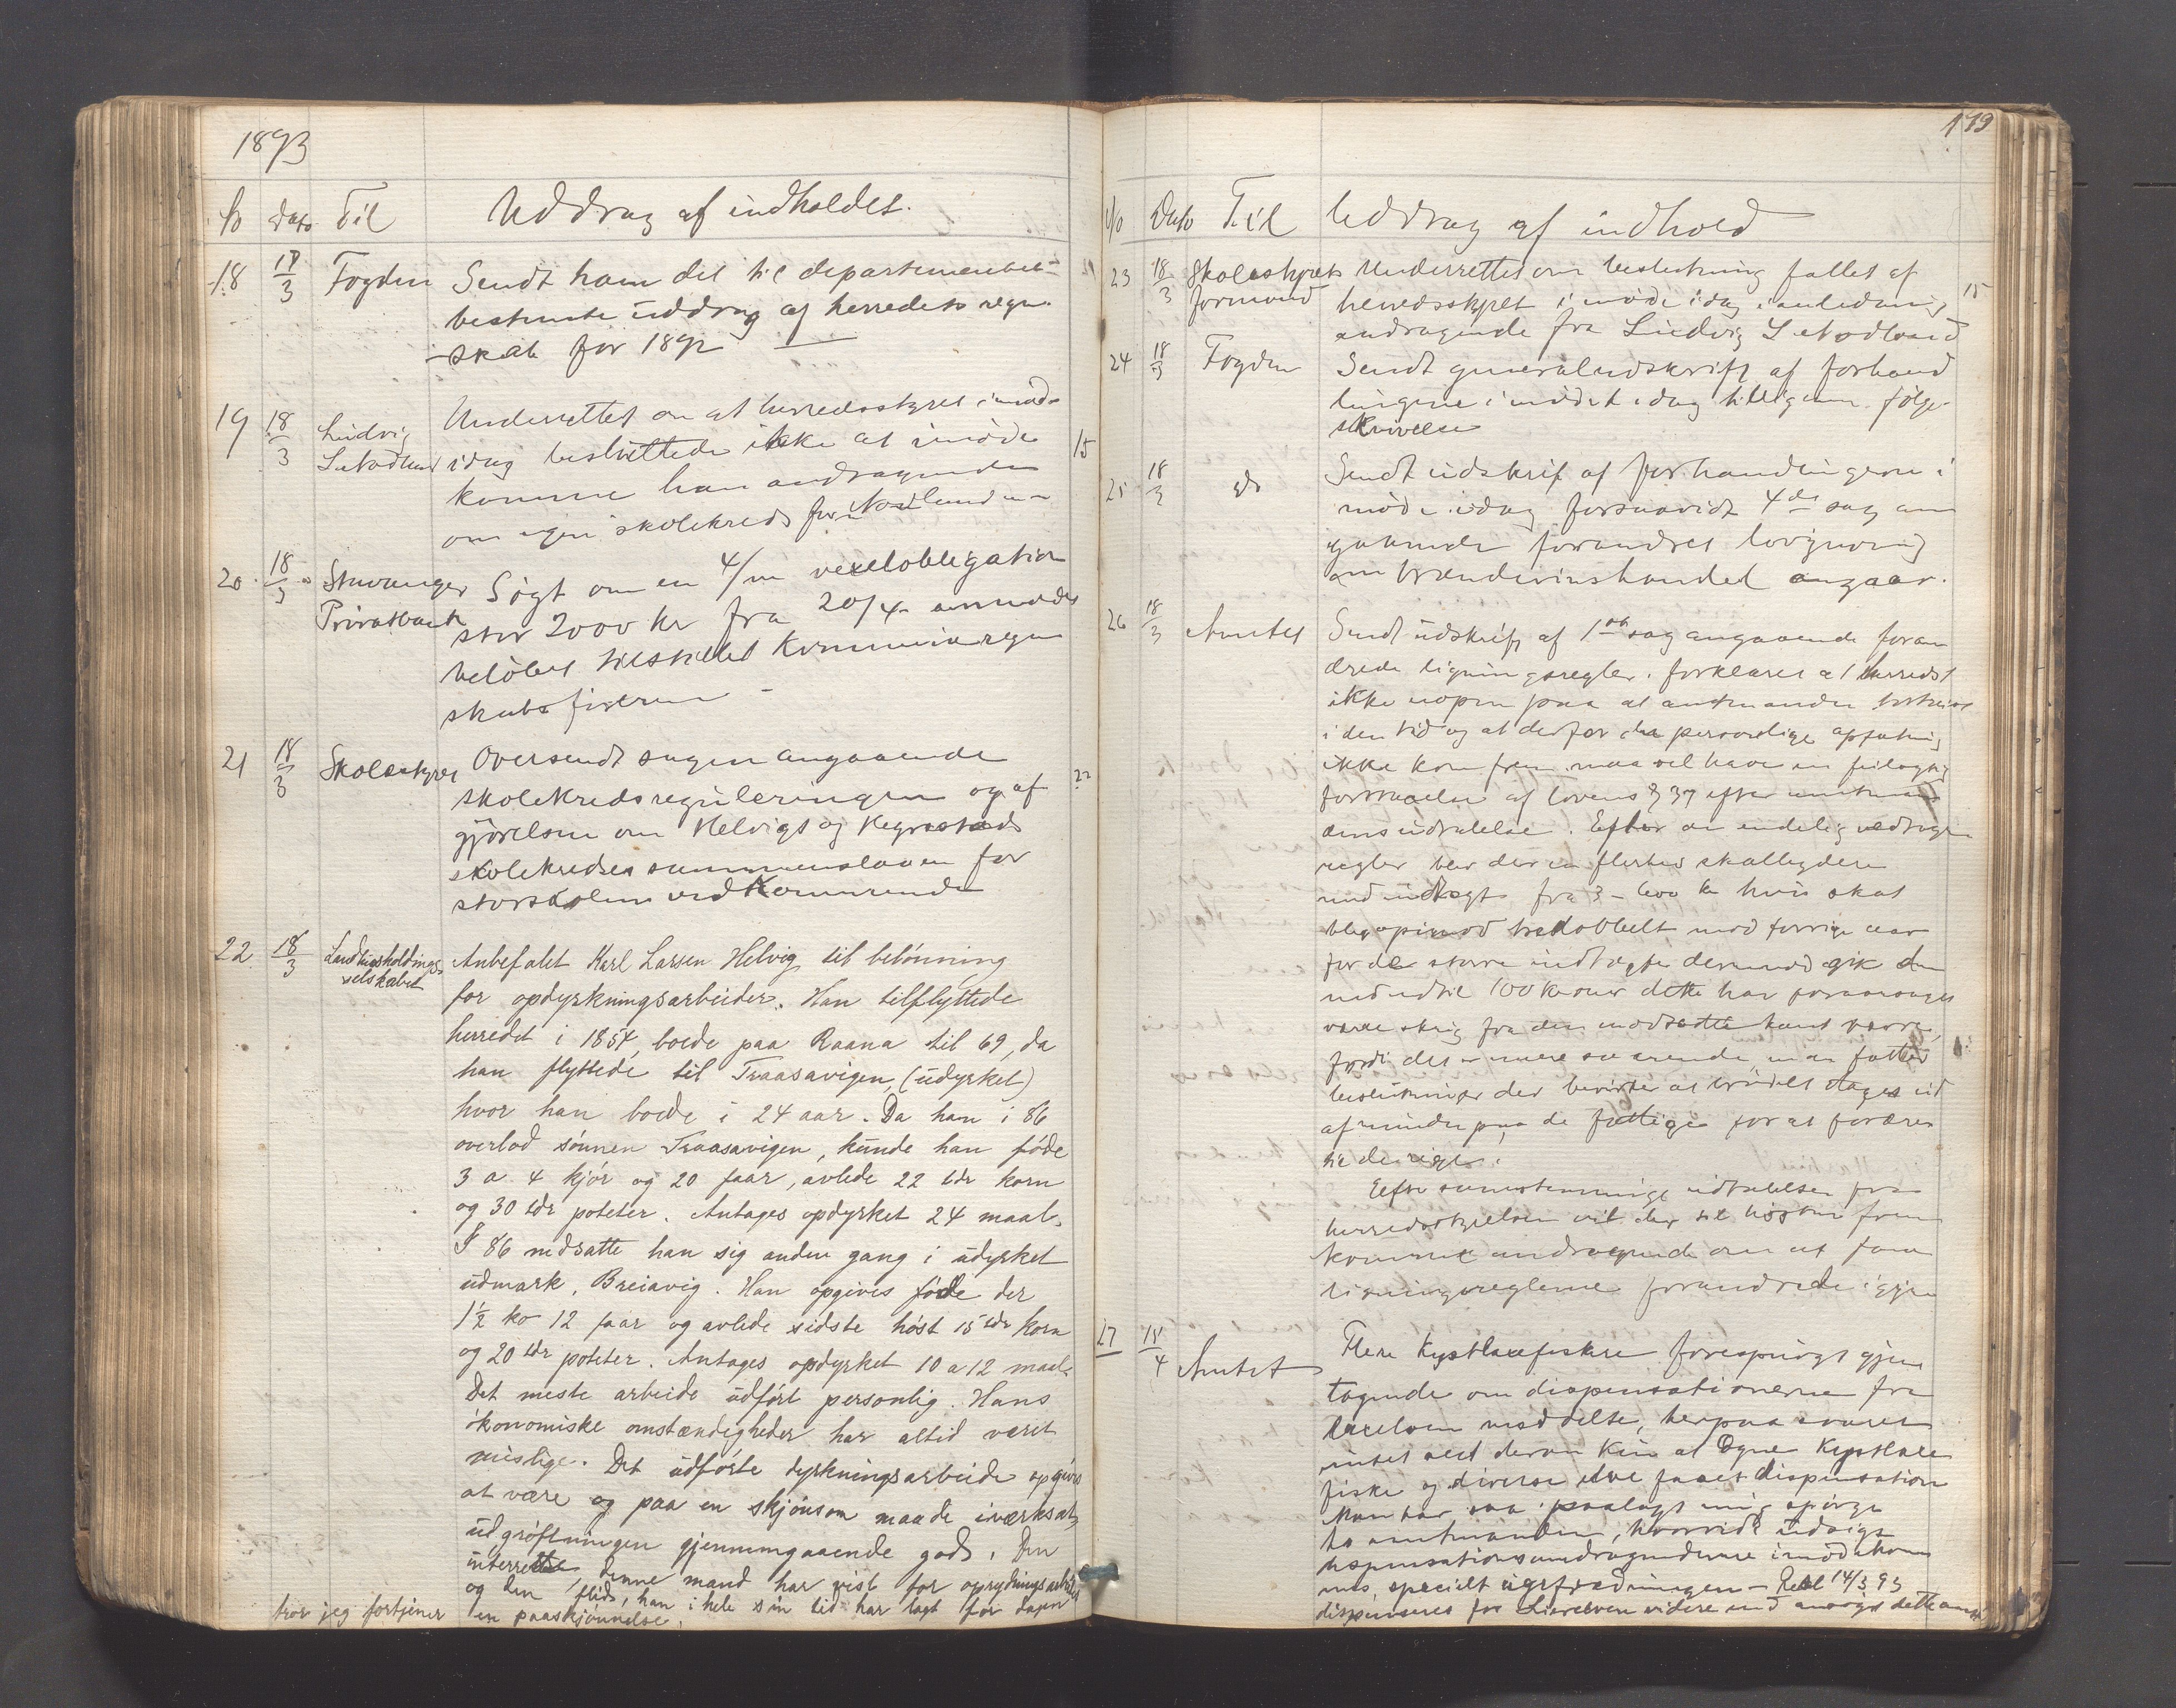 1893
No Dato Til Uddrag af indholdet.
18 18/3 Fogden Sendt ham det til departementet
bestemte uddrag af herredets regn
skab for 1892
19 18/3 Ludvig Underrettet om at herredsstyret i møde
idag besluttede ikke at imøde 15
komme hans andragende
om egen skolekreds for
20 18/3 Stavanger Søgt om en 4/m vexelobligation
Privatbank stor 2000 kr fra 20/4 anmodes
beløbet tilstillet kommuneregn
skabsføreren
21 18/3 Skolestyret Oversendt sagen angaaende
skolekredsreguleringen og af 22
gjørelsen om Helvigs og
skolekredses sammenslaaen for
storskolens vedkommende
22 18/3 Landhusholdnings Anbefalet Karl Larsen Helvig til belønning
selskabet for opdyrkningsarbeider. Han tilflyttede
herredet i 1854, boede paa Raana til 69, da
han flyttede til Traasavigen, (udyrket)
hvor han boede i 24 aar. Da han i 86
overlod sønnen Traasavigen, kunde han føde
3 a 4 kjør og 20 faar, avlede 22 tdr korn
og 30 tdr poteter. Antages opdyrket 24 maal.
I 86 nedsatte han sig anden gang i udyrket
udmark, Breiavig. Han opgives føde der
1½ ko 12 faar og avlede sidste høst 15 tdr korn
og 20 tdr poteter. Antages opdyrket 10 a 12 maal.
Det meste arbeide udført personlig. Hans
økonomiske omstændigheder har altid været
mislige. Det udførte dyrkningsarbeide opgives
at være og paa en skjønsom maade iværksat,
udgrøftningen gjennemgaaende god. Den
interesse, denne mand har vist for oprydningsarbeidet
og den flid, han i hele sin tid har lagt for dagen
tror jeg fortjener en paaskjønnelse.
179
No Dato Til Uddrag af indhold
23 18/3 Skolestyrets Underrettet om beslutning fattet af
formand herredsstyret i møde idag i anledning 15
andragende fra Ludvig
24 18/3 Fogden Sendt generaludskrift af forhand
lingerne i mødet idag tilligemed følge
skrivelse
25 18/3 do Sendt udskrift af forhandlingerne i
møde idag forsaavidt 4de sag an
gaaende forandret lovgivning
om brændevinshandel angaar.
26 18/3 Amtet Sendt udskrift af 1ste sag angaaende foran
drede ligningsregler. forklaret at herredst
ikke paa at amtmanden
i den tid og at derfor den personlige opfatning
ikke kom frem maa vel have en feilagtig
forstaaelse af lovens § 37 efter amtman
dens udtalelse. Efter de endelig vedtagne
regler blev der en flerhed skatteydere
med indtægt fra 3 – 600 kr hvis skat
blev opimod tredobbelt mod forrige aar
for de større indtægter derimod gik den
ned indtil 100 kroner dette har foraarsaget
skrig fra den modsatte kant
fordi det er mere man fatter
beslutninger der bevirker at brødet tages ud
af munden paa de fattige for at foræres
til de rige.
Efter samstemmige udtalelser fra
herredsstyrelsen vil der til høsten frem
komme andragende om at faa
ligningsreglerne forandrede igjen
27 15/4 Amtet Flere kystlaxefiskere forespurgt gjen
tagende om dispensationerne fra
laxeloven meddelte, herpaa svaret
intet vest derom kun at Ogne kystlaxe
fiske og diverse elve faaet dispensation
Man har saa paalagt mig spørge
hr amtmanden, hvorvidt
dispensationsandragenderne imødekom
mes, specielt Resl 14/3 93
dispenseres for videre end dette